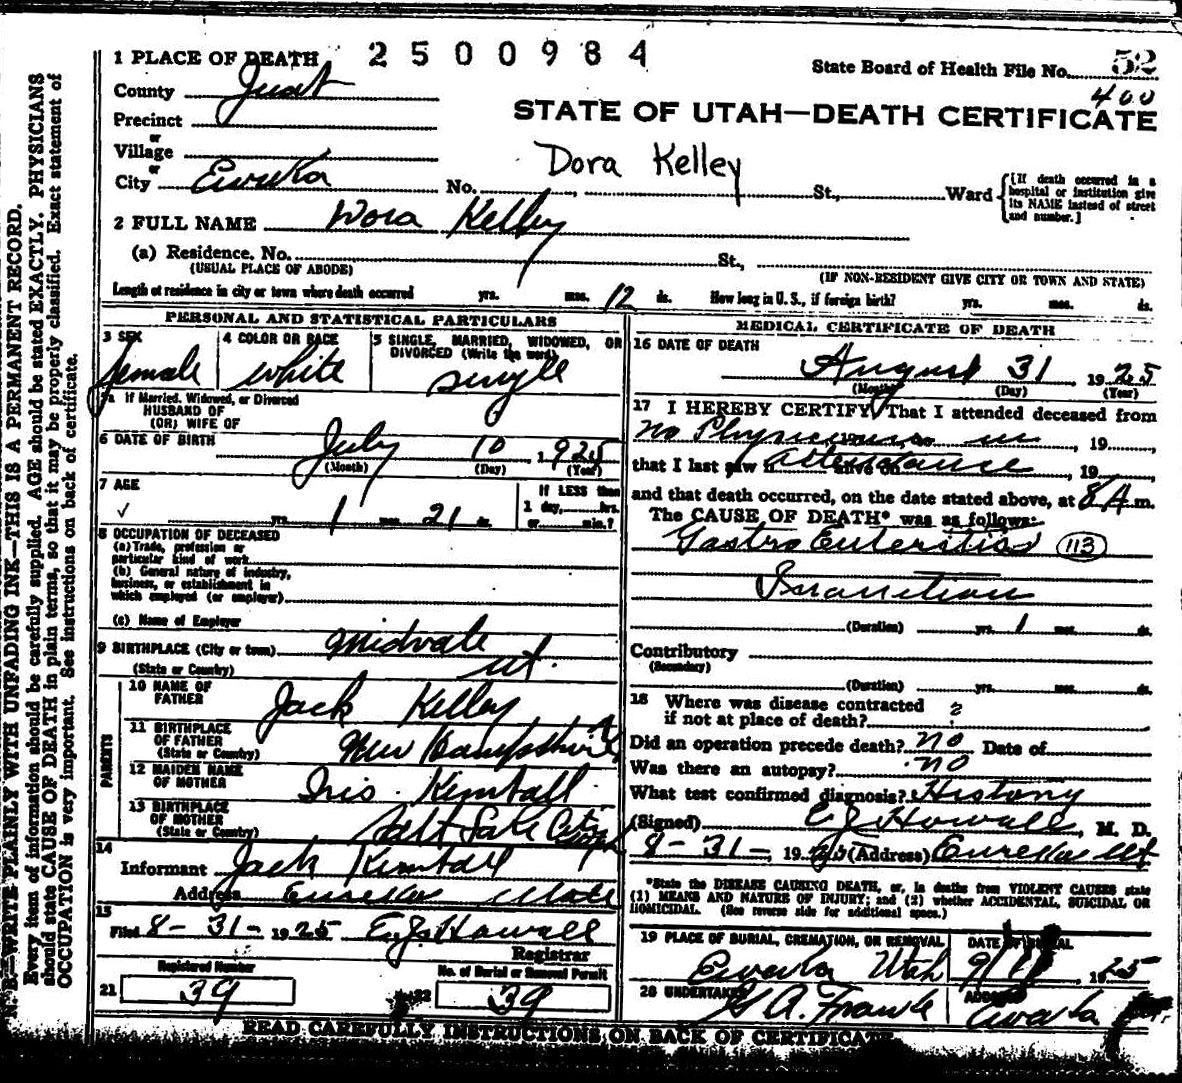 1 PLACE OF DEATH 2500984
State Board of Health File No. 52
400
County Juab
STATE OF UTAH—DEATH CERTIFICATE
Precinct
or
Village
Dora Kelley
or
City Eureka No. St., Ward
[If death occurred in a hospital or institution give its NAME instead of street and number.]
2 FULL NAME Dora Kelley
(a) Residence. No. St.,
(USUAL PLACE OF ABODE) (IF NON-RESIDENT GIVE CITY OR TOWN AND STATE)
Length of residence in city or town where death occurred yrs. mos. 12 ds. How long in U. S., if foreign birth? yrs. mos. ds.
PERSONAL AND STATISTICAL PARTICULARS
3 SEX
female
4 COLOR OR RACE
white
5 SINGLE, MARRIED, WIDOWED, OR DIVORCED (Write the word)
single
5a If Married, Widowed, or Divorced
HUSBAND OF
(OR) WIFE OF
6 DATE OF BIRTH July 10, 1925
(Month) (Day) (Year)
7 AGE
yrs. 1 mos. 21 ds.
If LESS than
1 day, hrs.
or min.?
8 OCCUPATION OF DECEASED
(a) Trade, profession or
particular kind of work
(b) General nature of industry,
business, or establishment in
which employed (or employer)
(c) Name of Employer
9 BIRTHPLACE (City or town) Midvale
(State or Country) Ut.
PARENTS
10 NAME OF
FATHER Jack Kelley
11 BIRTHPLACE
OF FATHER
(State or Country) New Hampshire
12 MAIDEN NAME
OF MOTHER Iris Kimball
13 BIRTHPLACE
OF MOTHER
(State or Country) Salt Lake City
14
Informant Jack Kimball
Address Eureka Utah
15
Filed 8-31-1925 E. J. Howell
Registrar
Registered Number
21 39
No. of Burial or Removal Permit
22 39
MEDICAL CERTIFICATE OF DEATH
16 DATE OF DEATH
August 31, 1925
(Month) (Day) (Year)
17 I HEREBY CERTIFY, That I attended deceased from
no Physician in, 19
that I last saw h attendance alive on, 19
and that death occurred, on the date stated above, at 8 A m.
The CAUSE OF DEATH* was as follows:
Gastro Enteritis 113
Inanition
(Duration) yrs. 1 mos. ds.
Contributory
(Secondary)
(Duration) yrs. mos. ds.
18 Where was disease contracted
if not at place of death? ?
Did an operation precede death? no Date of
Was there an autopsy? no
What test confirmed diagnosis? History
(Signed) E. J. Howell, M. D.
8-31-, 1925 (Address) Eureka Ut
*State the DISEASE CAUSING DEATH, or, in deaths from VIOLENT CAUSES state
(1) MEANS AND NATURE OF INJURY; and (2) whether ACCIDENTAL, SUICIDAL OR
HOMICIDAL. (See reverse side for additional space.)
19 PLACE OF BURIAL, CREMATION, OR REMOVAL
Eureka Utah
DATE OF BURIAL
9/1, 1925
20 UNDERTAKER
A. Frank
ADDRESS
Eureka
READ CAREFULLY INSTRUCTIONS ON BACK OF CERTIFICATE
N. B.—WRITE PLAINLY WITH UNFADING INK—THIS IS A PERMANENT RECORD.
Every item of information should be carefully supplied. AGE should be stated EXACTLY. PHYSICIANS
should state CAUSE OF DEATH in plain terms, so that it may be properly classified. Exact statement of
OCCUPATION is very important. See instructions on back of certificate.